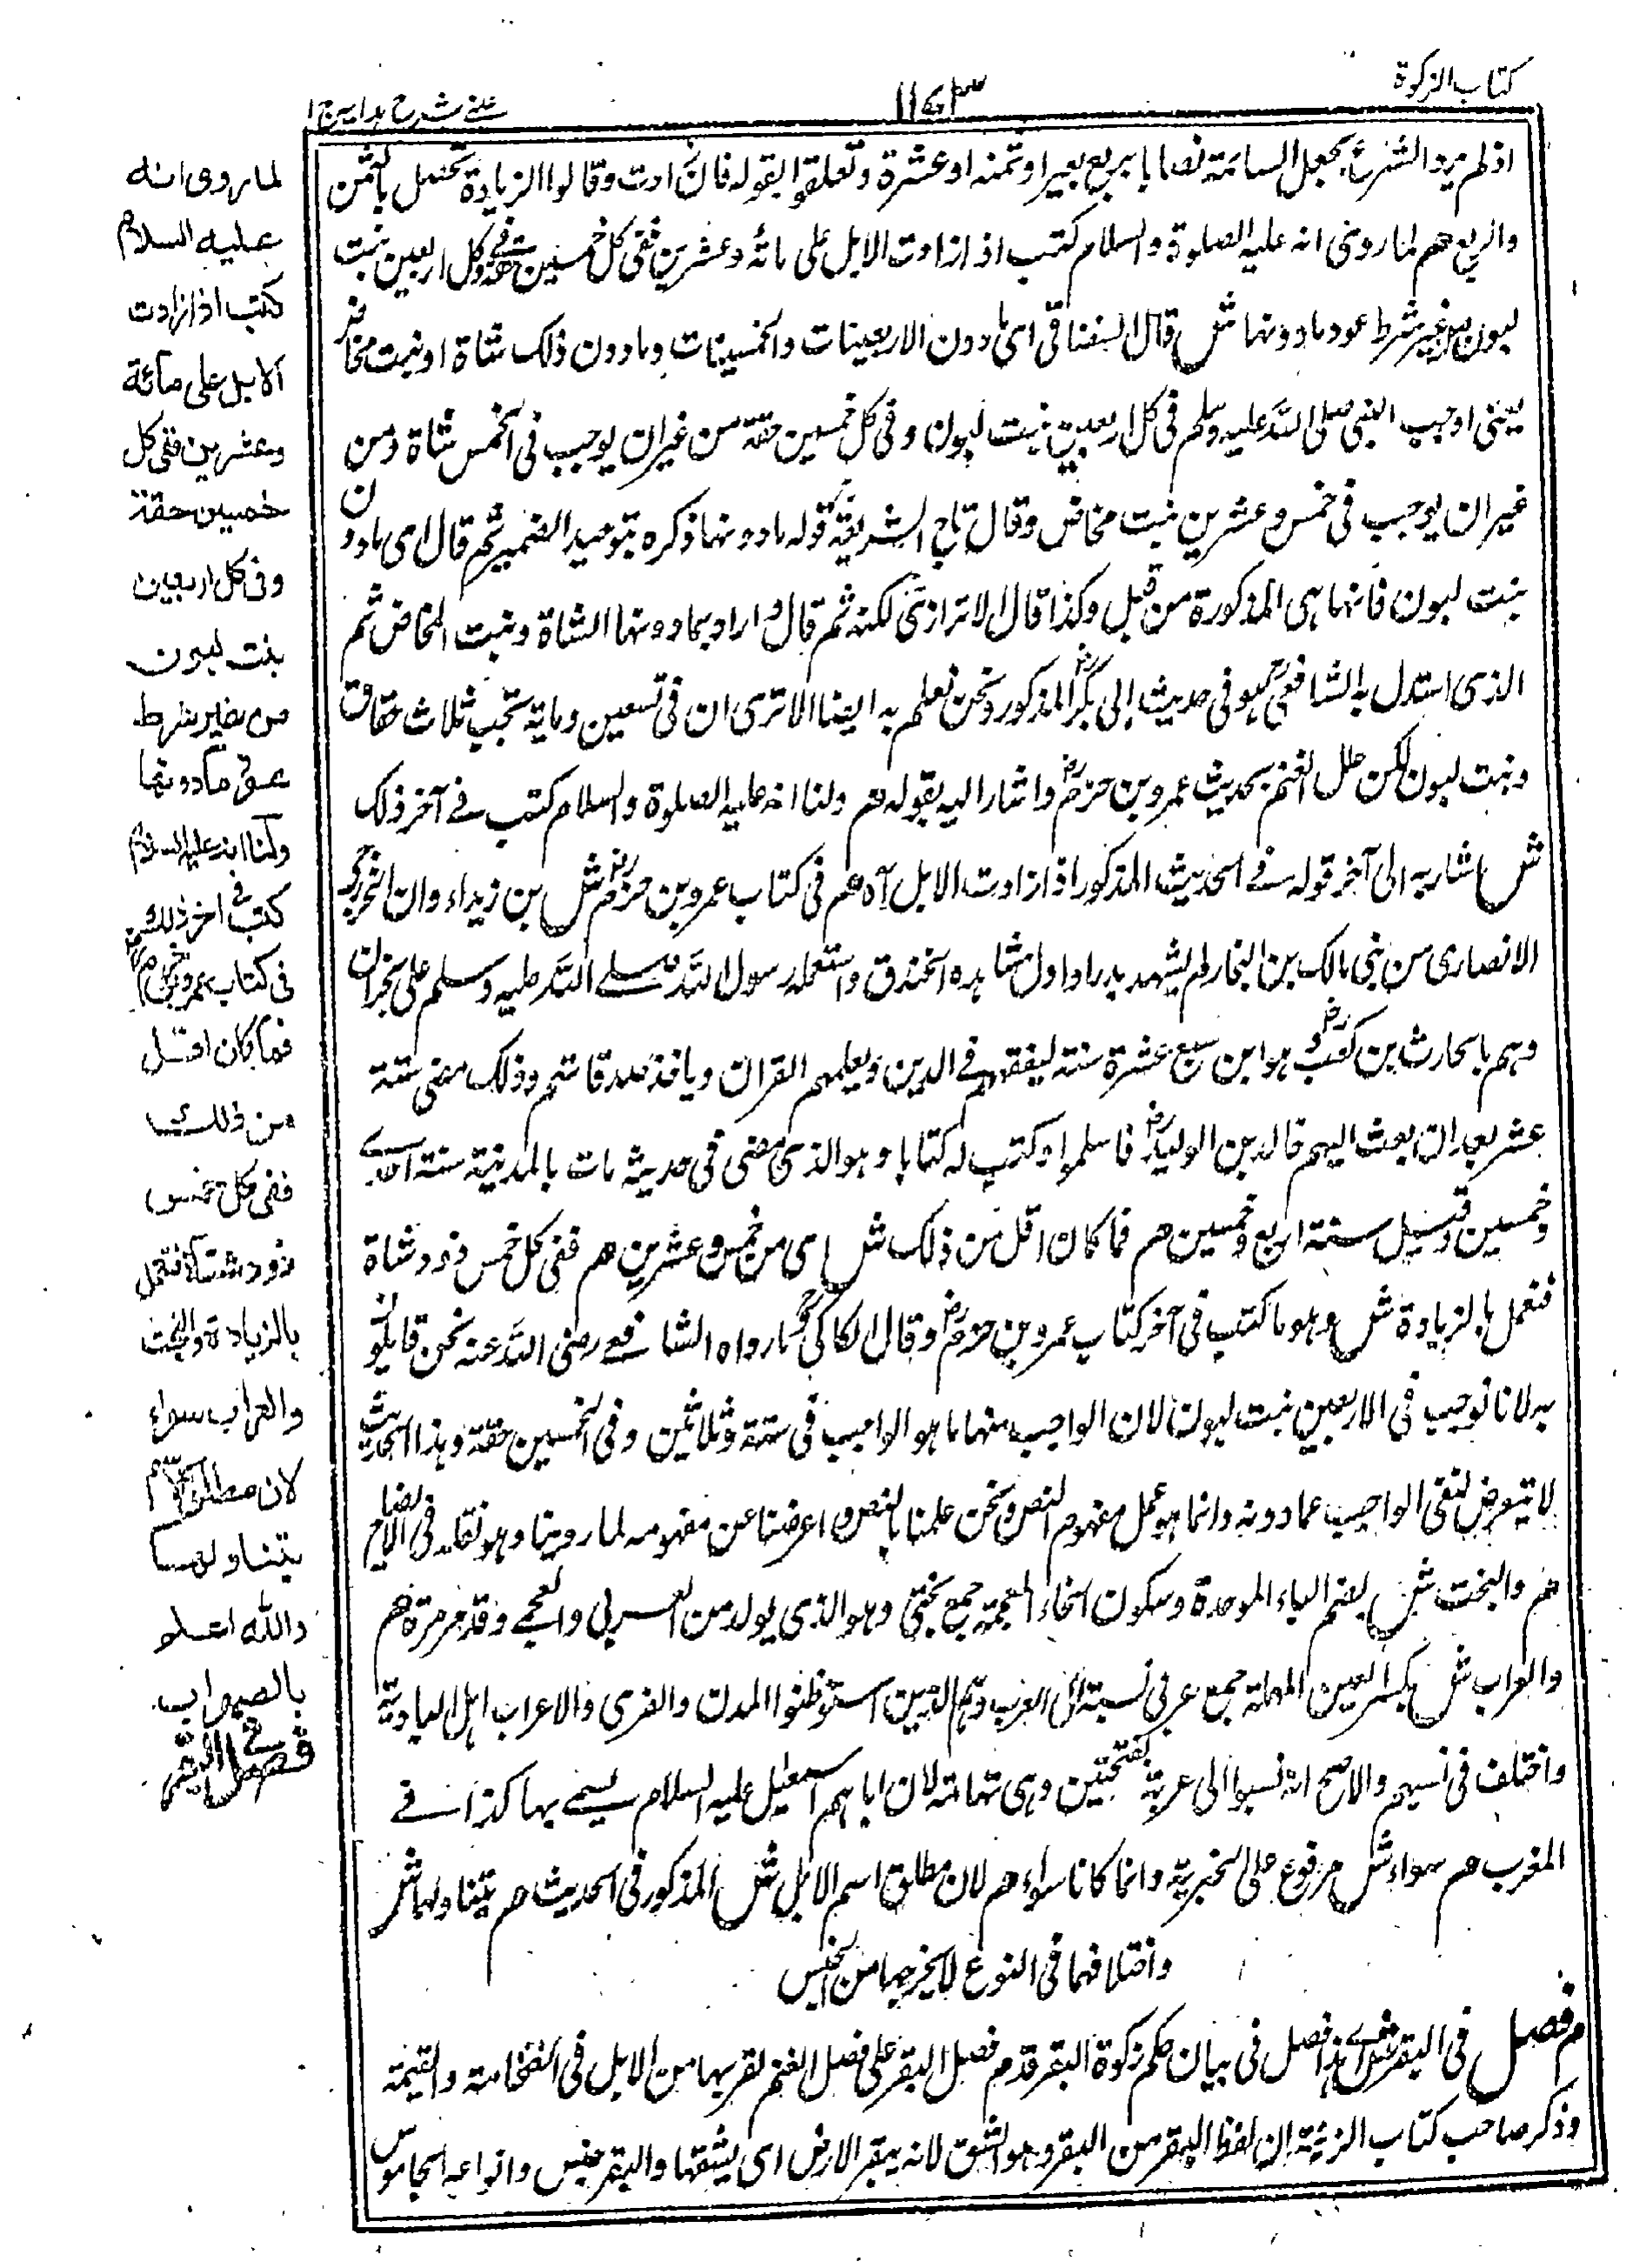 كتاب الزكوة
١١٧٣
عينى شرح هدايه ج ١
اذ لم يرد الشرع بجعل السائمة نصابا بربع بعير او ثمنه او عشرة وتعلقوا بقوله فان زادت وقالوا الزيادة تحتمل بالثمن
والربع هم لما روى انه عليه الصلوة والسلام كتب اذا زادت الابل على مائة وعشرين ففى كل خمسين حقة وفى كل اربعين بنت
لبون من غير شرط عود ما دونها ش قال السغناقى اى ما دون الاربعينات والخمسينات وما دون ذلك شاة او بنت مخاض
يعنى اوجب النبى صلى الله عليه وسلم فى كل اربعين بنت لبون وفى كل خمسين حقة من غير ان يوجب فى الخمس شاة ومن
غير ان يوجب فى خمس وعشرين بنت مخاض وقال تاج الشريعة قوله ما دونها ذكره بتوحيد الضمير ثم قال اى ما دون
بنت لبون فانها هى المذكورة من قبل وكذا قال الاترازى لكنه ثم قال واراد بما دونها الشاة وبنت المخاض ثم
الذى استدل به الشافعى هو فى حديث ابى بكر المذكور ونحن نعلم به ايضا الا ترى ان فى تسعين ومايه تجب ثلاث حقاق
وبنت لبون لكن علل الغنم بحديث عمرو بن حزم واشار اليه بقوله هم ولنا انه عليه الصلوة والسلام كتب فى آخر ذلك
ش اشار به الى آخر قوله فى الحديث المذكور اذا زادت الابل آه هم فى كتاب عمرو بن حزم ش بن زيد
الانصارى من بنى مالك بن النجار لم يشهد بدرا واول مشاهده الخندق واستعمله رسول الله صلى الله عليه وسلم على نجران
وهم بالحارث بن كعب وهو ابن سبع عشرة سنة ليفقههم فى الدين ويعلمهم القران وياخذ صدقاتهم وذلك سنة
عشر بعد ان بعث اليهم خالد بن الوليد فاسلموا وكتب له كتابا وهو الذى مضى فى حديثه مات بالمدينة سنة احدى
وخمسين وقيل سنة اربع وخمسين هم فما كان اقل من ذلك ش اى من خمس وعشرين هم ففى كل خمس ذود شاة
فنعمل بالزيادة ش وهو ما كتب فى آخر كتاب عمرو بن حزم وقال الكاكى ما رواه الشافعى رضى الله عنه نحن قايلون
به لانا نوجب فى الاربعين بنت لبون لان الواجب منها ما هو الواجب فى ستة وثلاثين وفى الخمسين حقة وهذا الحديث
لا يتعرض لنفى الواجب عما دونه وانما هو عمل بمفهوم النص ونحن عملنا بالنص واعرضنا عن مفهومه لما روينا وهو نقله فى الايضاح
هم والبخت ش بضم الباء الموحدة وسكون الخاء المعجمة جمع بختى وهو الذى يولد من العربى والعجمى وقد مر مرة هم
والعراب ش بكسر العين المهملة جمع عربى نسبة الى العرب وهم الذين استوطنوا المدن والقرى والاعراب اهل البادية
واختلف فى نسبهم والاصح انه نسبوا الى عربة بفتحتين وهى تهامة لان اباهم اسمعيل عليه السلام سمى بها كذا فى
المغرب هم سواء ش مرفوع على الخبرية وانما كانا سواء هم لان مطلق اسم الابل ش المذكور فى الحديث هم يتناولهما ش
واختلافهما فى النوع لا يخرجهما من الجنس
م فصل فى البقر ش اى هذا فصل فى بيان حكم زكوة البقر قدم فصل البقر على فصل الغنم لقربها من الابل فى الضخامة والقيمة
وذكر صاحب كتاب الزينة ان لفظ البقر من البقر وهو الشق لانه يبقر الارض اى يشقها والبقر جنس وانواعه الجاموس
لما روى انه
عليه السلام
كتب اذا زادت
الابل على مائة
وعشرين ففى كل
خمسين حقة
وفى كل اربعين
بنت لبون
من غير شرط
عود ما دونها
ولنا انه عليه السلام
كتب فى اخر ذلك
فى كتاب عمرو بن حزم
فما كان اقل
من ذلك
ففى كل خمس
ذود شاة فنعمل
بالزيادة والبخت
والعراب سواء
لان مطلق الاسم
يتناولهما
والله اعلم
بالصواب
فصل فى البقر